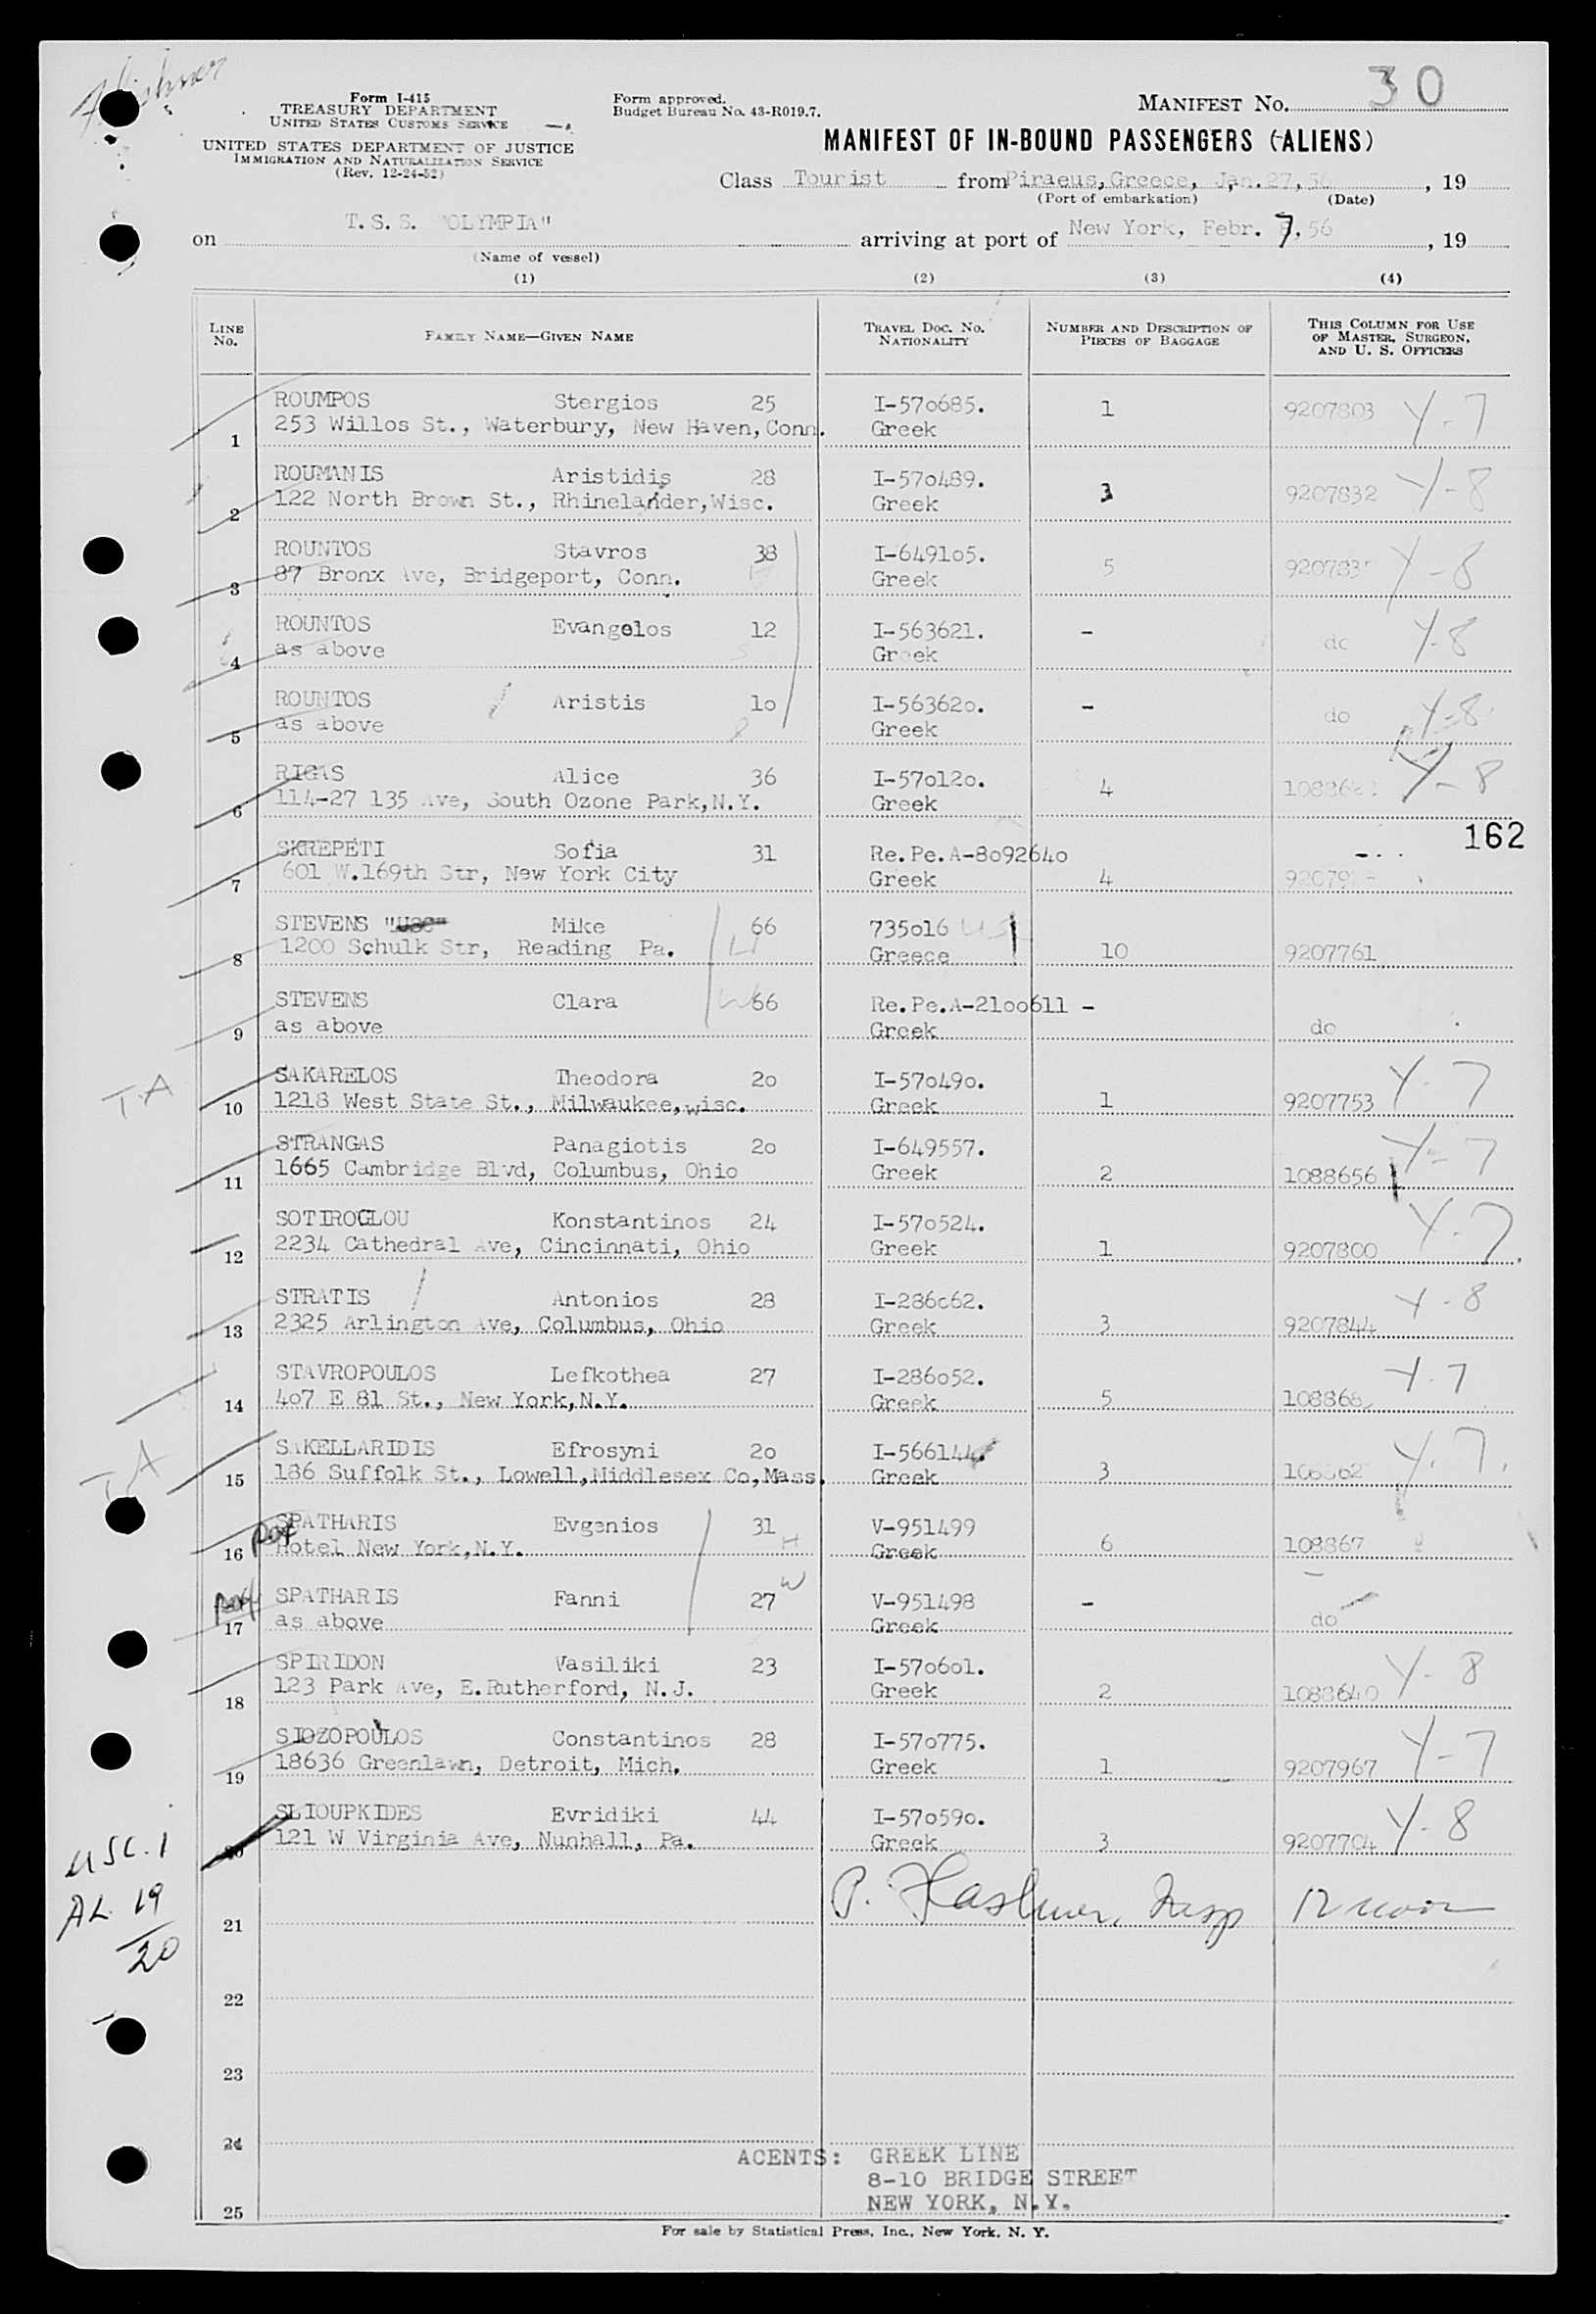 Form I-415
TREASURY DEPARTMENT
UNITED STATES CUSTOMS SERVICE
UNITED STATES DEPARTMENT OF JUSTICE
IMMIGRATION AND NATURALIZATION SERVICE
(Rev. 12-24-52)
Form approved.
Budget Bureau No. 43-R019.7.
MANIFEST No. 30
MANIFEST OF IN-BOUND PASSENGERS (ALIENS)
Class Tourist from Piraeus, Greece, Jan. 27, 56, 19
(Port of embarkation) (Date)
on T.S.S. "OLYMPIA" arriving at port of New York, Febr. 7, 56, 19
(Name of vessel)
(1) (2) (3) (4)
LINE No. FAMILY NAME—GIVEN NAME TRAVEL DOC. NO. NATIONALITY NUMBER AND DESCRIPTION OF PIECES OF BAGGAGE THIS COLUMN FOR USE OF MASTER, SURGEON, AND U. S. OFFICERS
ROUMPOS Stergios 25 I-570685. 1 9207803 Y-7
1 253 Willos St., Waterbury, New Haven, Conn. Greek
ROUMANIS Aristidis 28 I-570489. 3 9207832 Y-8
2 122 North Brown St., Rhinelander, Wisc. Greek
ROUNTOS Stavros 38 I-649105. 5 Y-8
3 87 Bronx Ave, Bridgeport, Conn. Greek
ROUNTOS Evangelos 12 I-563621. - do Y-8
4 as above Greek
ROUNTOS Aristis 10 I-563620. - do Y-8
5 as above Greek
RIGAS Alice 36 I-570120. 4 Y-8
6 114-27 135 Ave, South Ozone Park, N.Y. Greek
162
SKREPETI Sofia 31 Re.Pe.A-8092640
7 601 W.169th Str, New York City Greek 4
STEVENS "USC" Mike 66 735016 US
8 1200 Schulk Str, Reading Pa. H Greece 10 9207761
STEVENS Clara W 66 Re.Pe.A-2100611 -
9 as above Greek do
T-A
SAKARELOS Theodora 20 I-570490. Y-7
10 1218 West State St., Milwaukee, wisc. Greek 1 9207753
STRANGAS Panagiotis 20 I-649557. Y-7
11 1665 Cambridge Blvd, Columbus, Ohio Greek 2 1088656
SOTIROGLOU Konstantinos 24 I-570524. Y-7
12 2234 Cathedral Ave, Cincinnati, Ohio Greek 1 9207800
STRATIS Antonios 28 I-286062. Y-8
13 2325 Arlington Ave, Columbus, Ohio Greek 3 9207844
STAVROPOULOS Lefkothea 27 I-286052. Y-7
14 407 E 81 St., New York, N.Y. Greek 5
T A
SAKELLARIDIS Efrosyni 20 I-566144. Y-7.
15 186 Suffolk St., Lowell, Middlesex Co, Mass. Greek 3
SPATHARIS Evgenios 31 V-951499
16 Hotel New York, N.Y. H Greek 6 108867
SPATHARIS Fanni 27 W V-951498 -
17 as above Greek do
SPIRIDON Vasiliki 23 I-570601. Y-8
18 123 Park Ave, E.Rutherford, N.J. Greek 2 1088640
SIOZOPOULOS Constantinos 28 I-570775. Y-7
19 18636 Greenlawn, Detroit, Mich. Greek 1 9207967
SLIOUPKIDES Evridiki 44 I-570590. Y-8
20 121 W Virginia Ave, Nunhall, Pa. Greek 3 9207704
USC. 1
AL. 19
20
21 P. Flashner, Insp 12 noon
22
23
24
ACENTS: GREEK LINE
8-10 BRIDGE STREET
25 NEW YORK, N.Y.
For sale by Statistical Press, Inc., New York, N. Y.